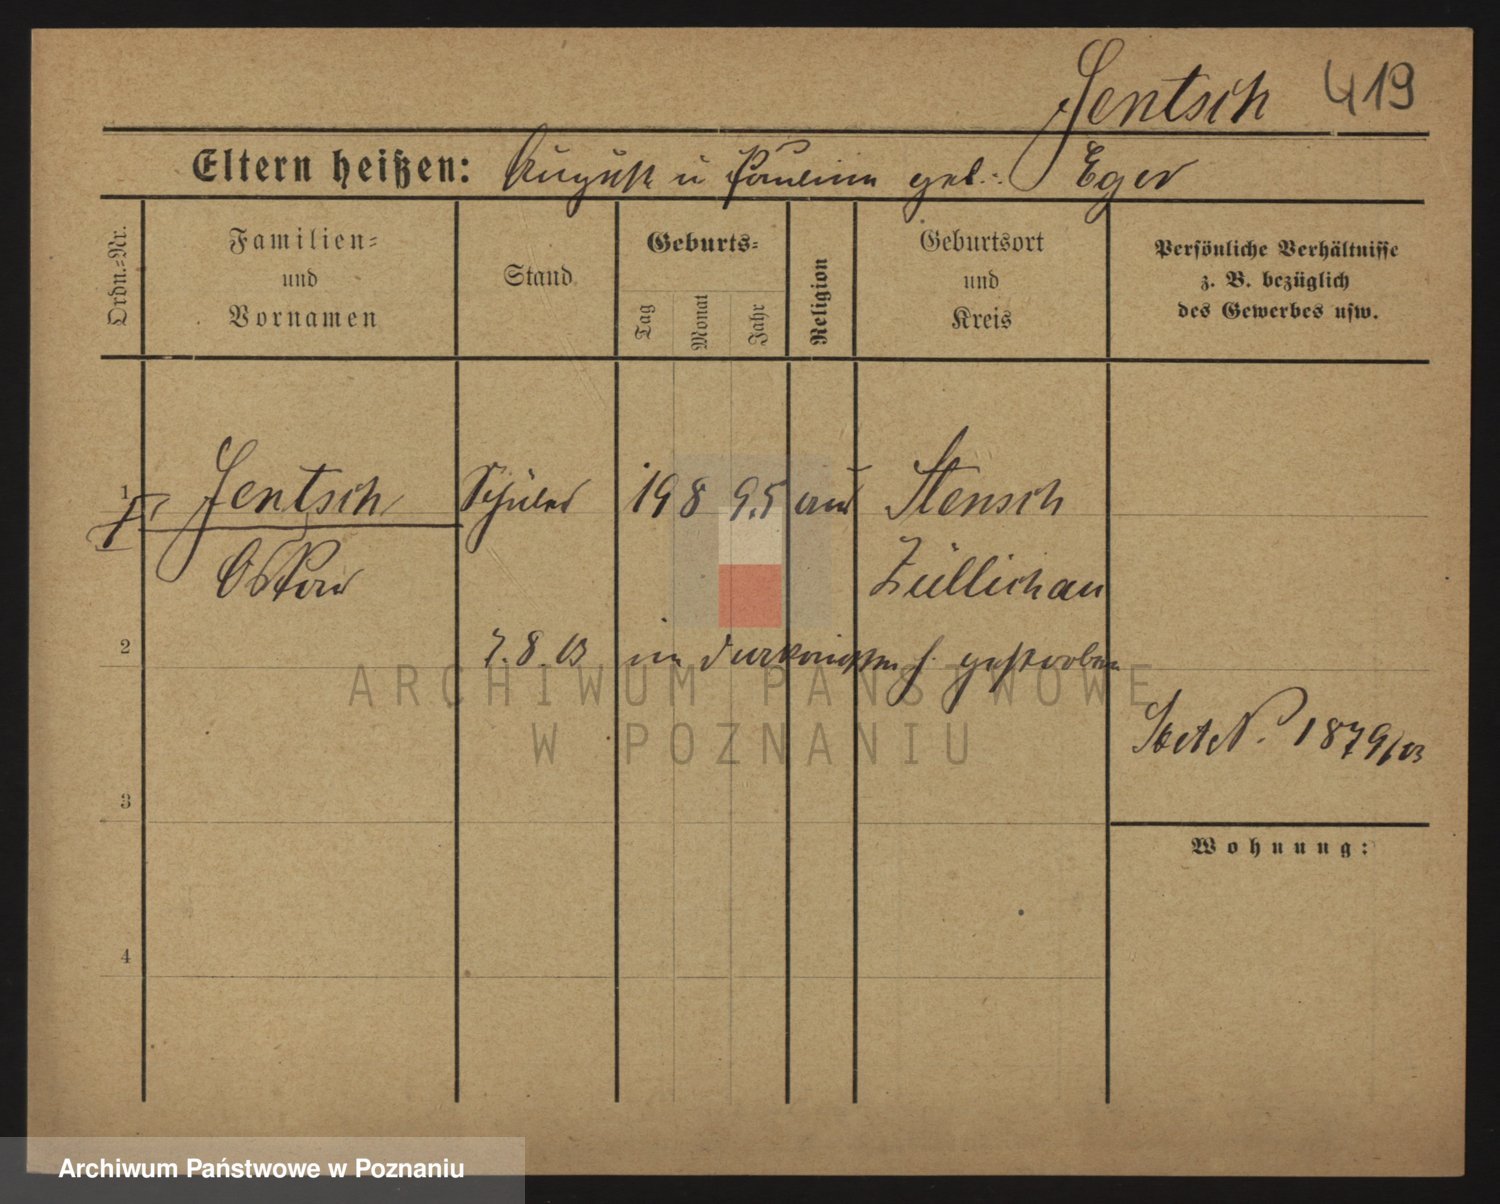 Jentsch 419
Eltern heißen: August u Pauline geb. Eger
Ordn.-Nr.
Familien-
und
Vornamen
Stand
Geburts-
Tag
Monat
Jahr
Religion
Geburtsort
und
Kreis
Persönliche Verhältnisse
z. B. bezüglich
des Gewerbes usw.
1 Jentsch Schüler 19 8 95 Stensch
Oskar Züllichau
2 7.8.03 im gestorben
No. 1879/03
3
Wohnung:
4
ARCHIWUM PAŃSTWOWE
W POZNANIU
Archiwum Państwowe w Poznaniu